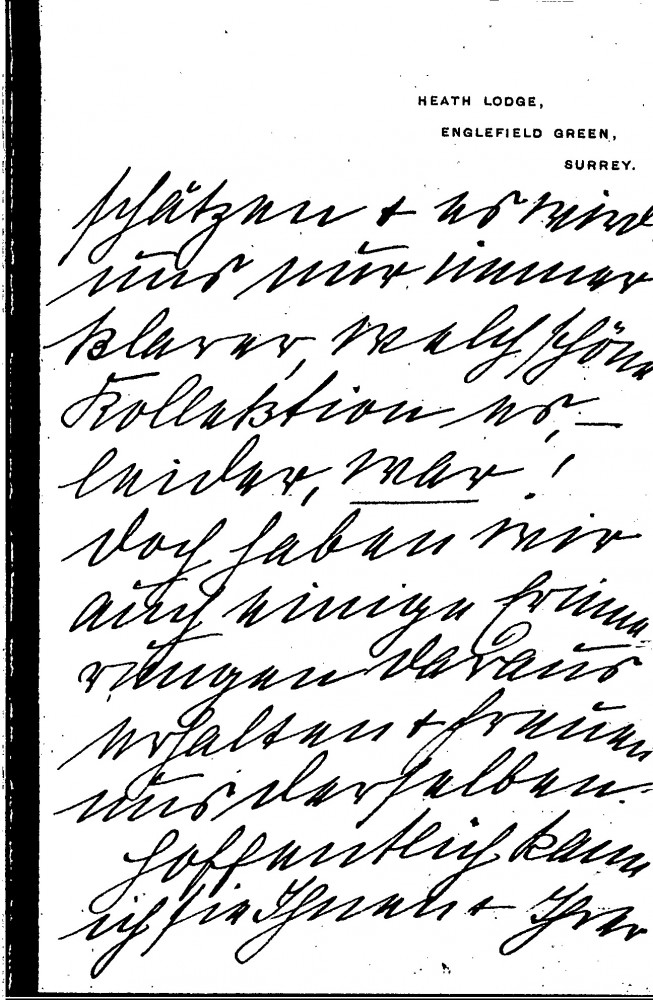 HEATH LODGE,
ENGLEFIELD GREEN,
SURREY.
schätzen + es wird
uns nur immer
klarer, welch schöne
Kollektion es, –
leider, war!
Doch haben wir
auch einige Erinne
rungen daraus
erhalten + freuen
uns derselben.
Hoffentlich kann
ich sie Ihnen + Ihrer